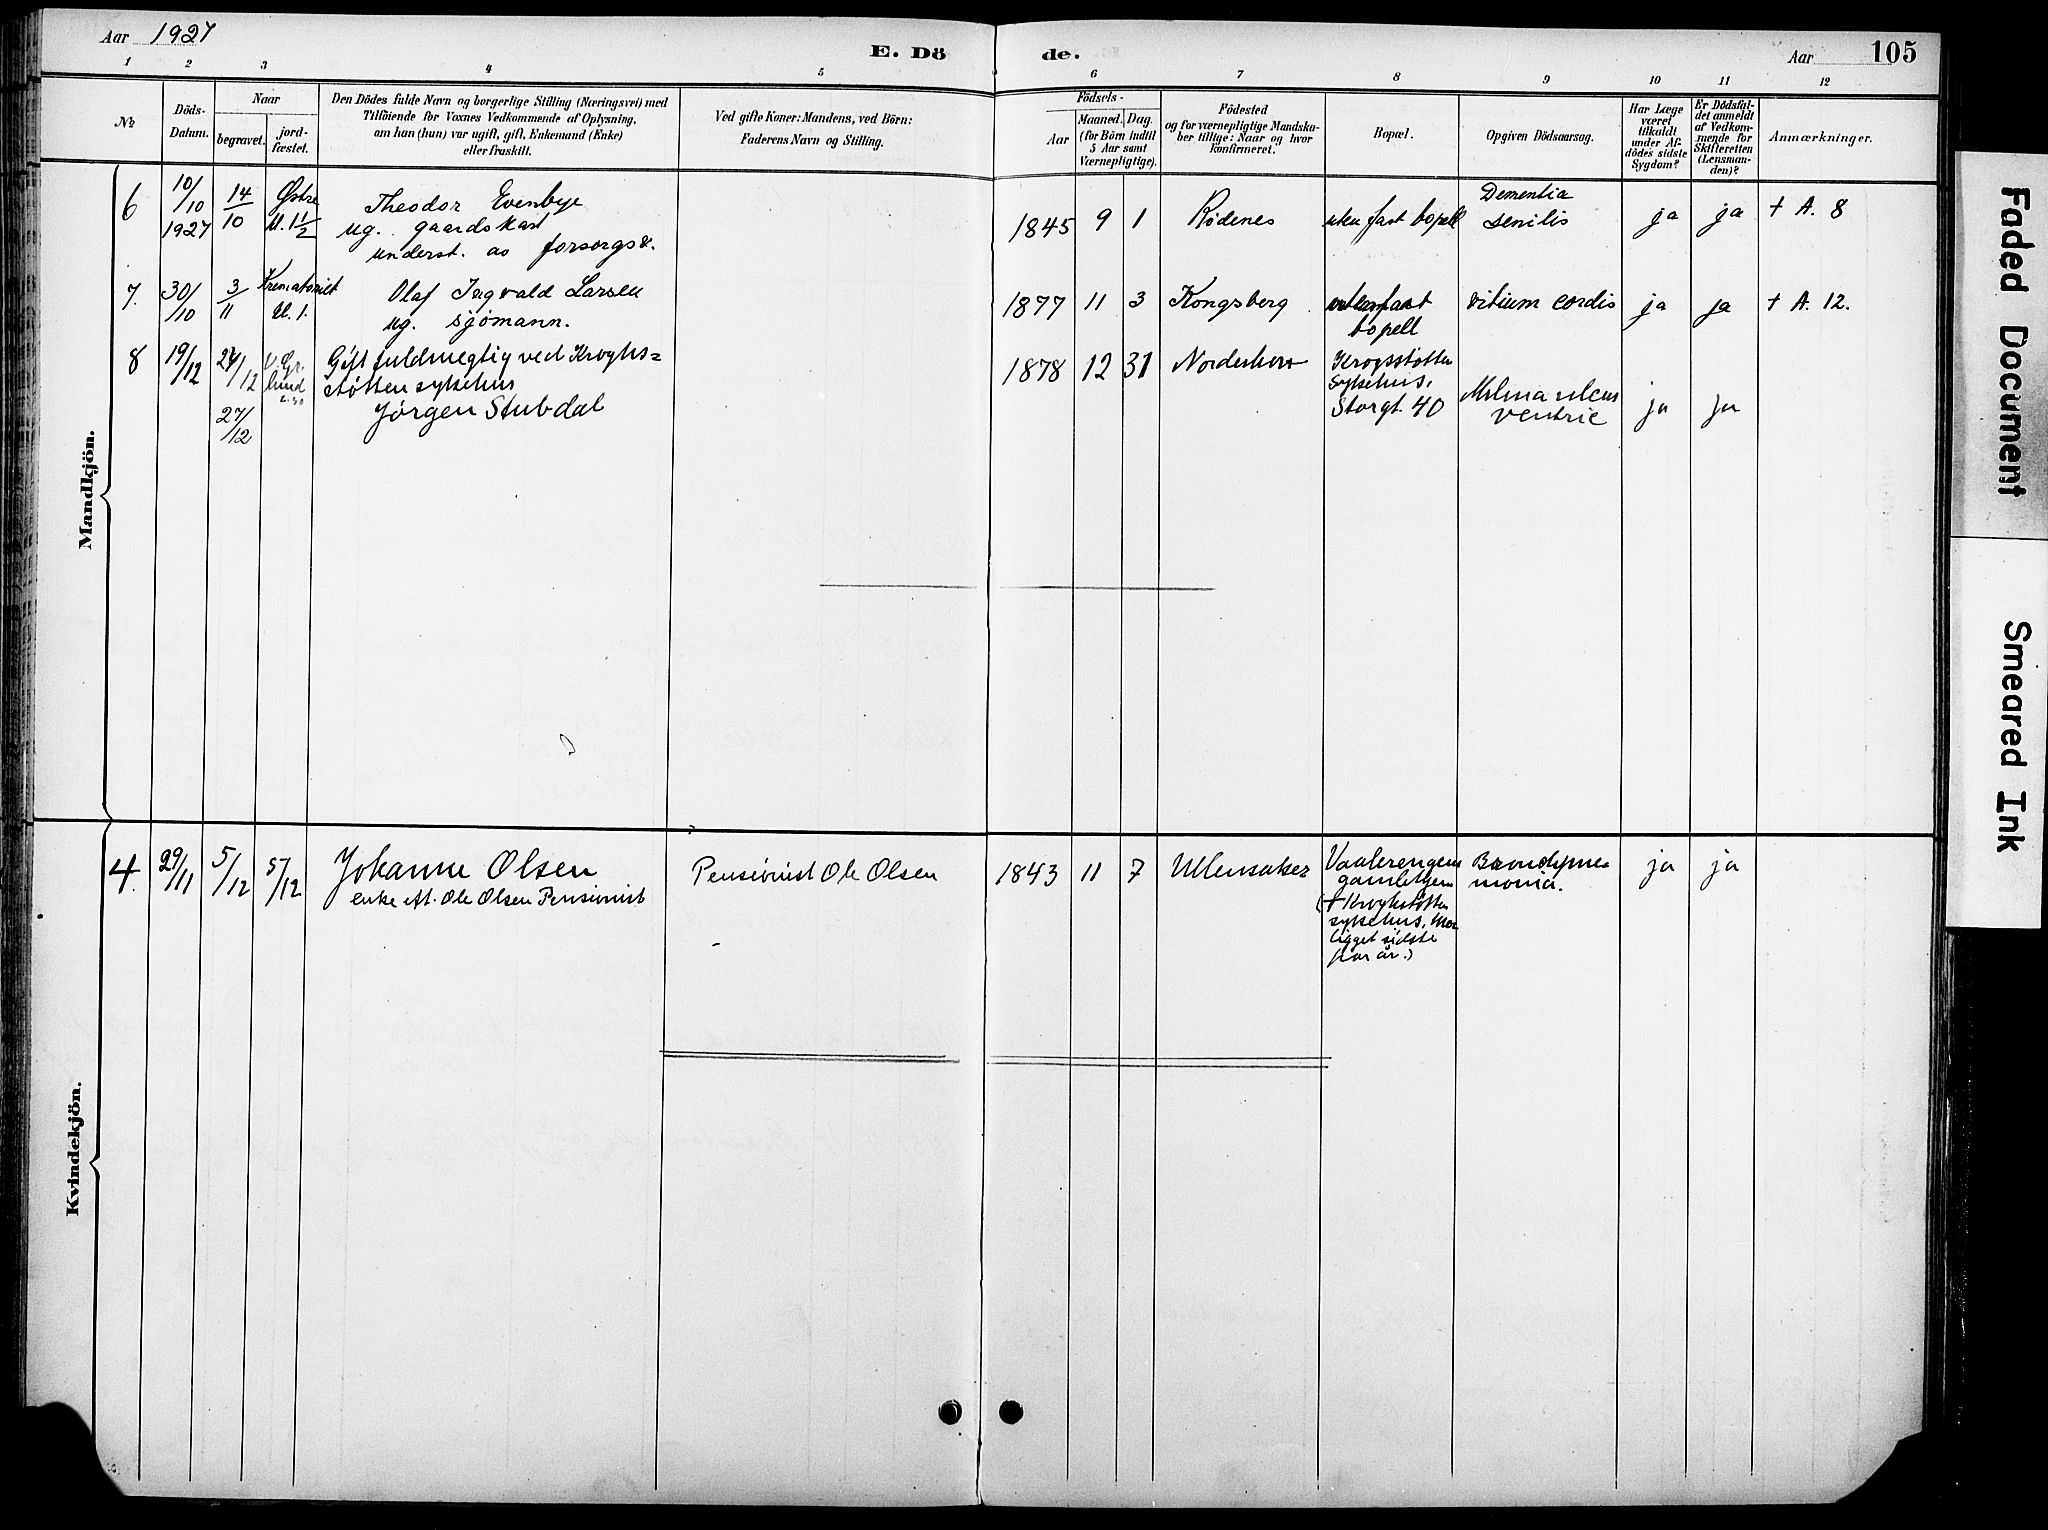 Aar 1927
E. Dö
de.
Aar
105
1 2 3 4 5 6 7 8 9 10 11 12
No
Döds-
Datum.
Naar
begravet.
jord-
fæstet.
Den Dödes fulde Navn og borgerlige Stilling (Næringsvei) med
Tilföiende for Voxnes Vedkommende af Oplysning,
om han (hun) var ugift, gift, Enkemand (Enke)
eller fraskilt.
Ved gifte Koner: Mandens, ved Börn:
Faderens Navn og Stilling.
Födsels-
Aar
Maaned.
Dag.
(for Börn indtil
5 Aar samt
Værnepligtige).
Födested
og for værnepligtige Mandska-
ber tillige: Naar og hvor
konfirmeret.
Bopæl.
Opgiven Dödsaarsag.
Har Læge
været
tilkaldt
under Af-
dödes sidste
Sygdom?
Er Dödsfal-
det anmeldt
af Vedkom-
mende for
Skifteretten
(Lensman-
den)?
Anmærkninger.
Mandkjön.
6
10/10
1927
14/10
Østre
kl. 1 1/2
Theodor Evenbye
ug. gaardskar
underst. av forsorgsv.
1845
9
1
Rødenes
uten fast bopell
Dementia
senilis
ja
ja
+ A. 8
7.
30/10
3/11
Krematoriet
kl. 1.
Olaf Ingvald Larsen
ug. sjømann.
1877
11
3
Kongsberg
uten fast
bopell
vitium cordis
ja
ja
+ A. 12.
8
19/12
24/12
27/12
V. Gr.
lund
Gift fuldmegtig ved Kroghs=
støtten sykehus
Jørgen Stubdal
1878
12
31
Norderhov
Krogsstøtten
sykehus.
Storgt. 40
ulcus
ventric
ja
ja
Kvindekjön.
4.
29/11
5/12
5/12
Johanne Olsen
enke eft. Ole Olsen Pensionist
Pensionist Ole Olsen
1843
11
7
Ullensaker
Vaalerengens
gamlehjem
(+ Kroghstøtten
sykehus, har
ligget sidste
par år.)
Bronchpneu-
monia.
ja
ja
Faded Document
Smeared Ink